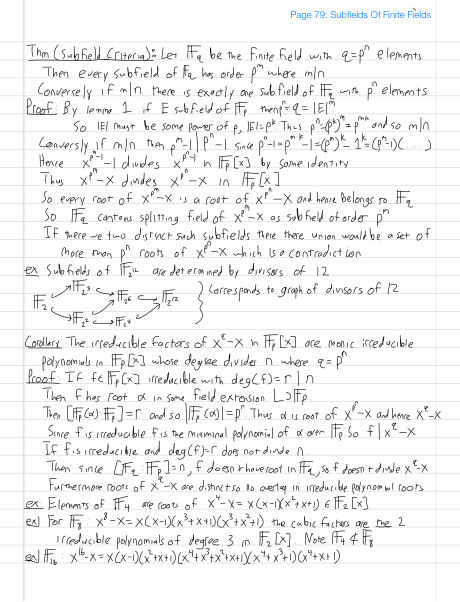 Page 79: Subfields Of Finite Fields
Thm (Subfield Criteria): Let 𝔽_q be the finite field with q=pⁿ elements
Then every subfield of 𝔽_q has order p^m where m|n
Conversely if m|n there is exactly one subfield of 𝔽_q with p^m elements
Proof: By lemma 1 if E subfield of 𝔽_p then pⁿ=q=|E|^m
So |E| must be some power of p, |E|=p^k. Thus pⁿ=(p^k)^m=p^mk and so m|n
Conversly if m|n then p^m-1|pⁿ-1 since pⁿ-1=p^mk-1=(p^m)^k-1^k=(p^m-1)(...)
Hence x^(p^m-1)-1 divides x^(pⁿ-1)-1 in 𝔽_p[x] by some identity
Thus x^(p^m)-x divides x^(pⁿ)-x in 𝔽_p[x]
So every root of x^(p^m)-x is a root of x^(pⁿ)-x and hence belongs to 𝔽_q
So 𝔽_q contains splitting field of x^(p^m)-x as subfield of order p^m
If there we two distinct such subfields there there union would be a set of
more than p^m roots of x^(p^m)-x which is a contradiction
ex Subfields of 𝔽_2^12 are determined by divisors of 12
𝔽_2 𝔽_2^3 𝔽_2^2 𝔽_2^6 𝔽_2^4 𝔽_2^12 } Corresponds to graph of divisors of 12
Corollary: The irreducible factors of x^q-x in 𝔽_p[x] are monic irreducible
polynomials in 𝔽_p[x] whose degree divides n where q=pⁿ
Proof: If f∈𝔽_p[x] irreducible with deg(f)=r | n
Then f has root α in some field extension L⊃𝔽_p
Then [𝔽_p(α):𝔽_p]=r and so |𝔽_p(α)|=p^r Thus α is root of x^(p^r)-x and hence x^q-x
Since f is irreducible f is the minimal polynomial of α over 𝔽_p. So f | x^q-x
If f is irreducible and deg(f)=r does not divide n
Then since [𝔽_q:𝔽_p]=n, f doesn't have root in 𝔽_q, so f doesn't divide x^q-x
Furthermore roots of x^q-x are distinct so no overlap in irreducible polynomial roots
ex Elements of 𝔽_4 are roots of x^4-x=x(x-1)(x²+x+1)∈𝔽_2[x]
ex) For 𝔽_8: x^8-x=x(x-1)(x³+x+1)(x³+x²+1) the cubic factors are the 2
irreducible polynomials of degree 3 in 𝔽_2[x]. Note 𝔽_4⊄𝔽_8
ex) 𝔽_16: x^16-x=x(x-1)(x²+x+1)(x⁴+x³+x²+x+1)(x⁴+x³+1)(x⁴+x+1)